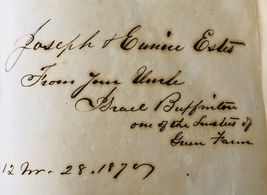 Joseph & Eunice Estes
From your Uncle
Israel Buffinton
one of the Trustees of
Guen Farm
12 Mo. 28. 1870